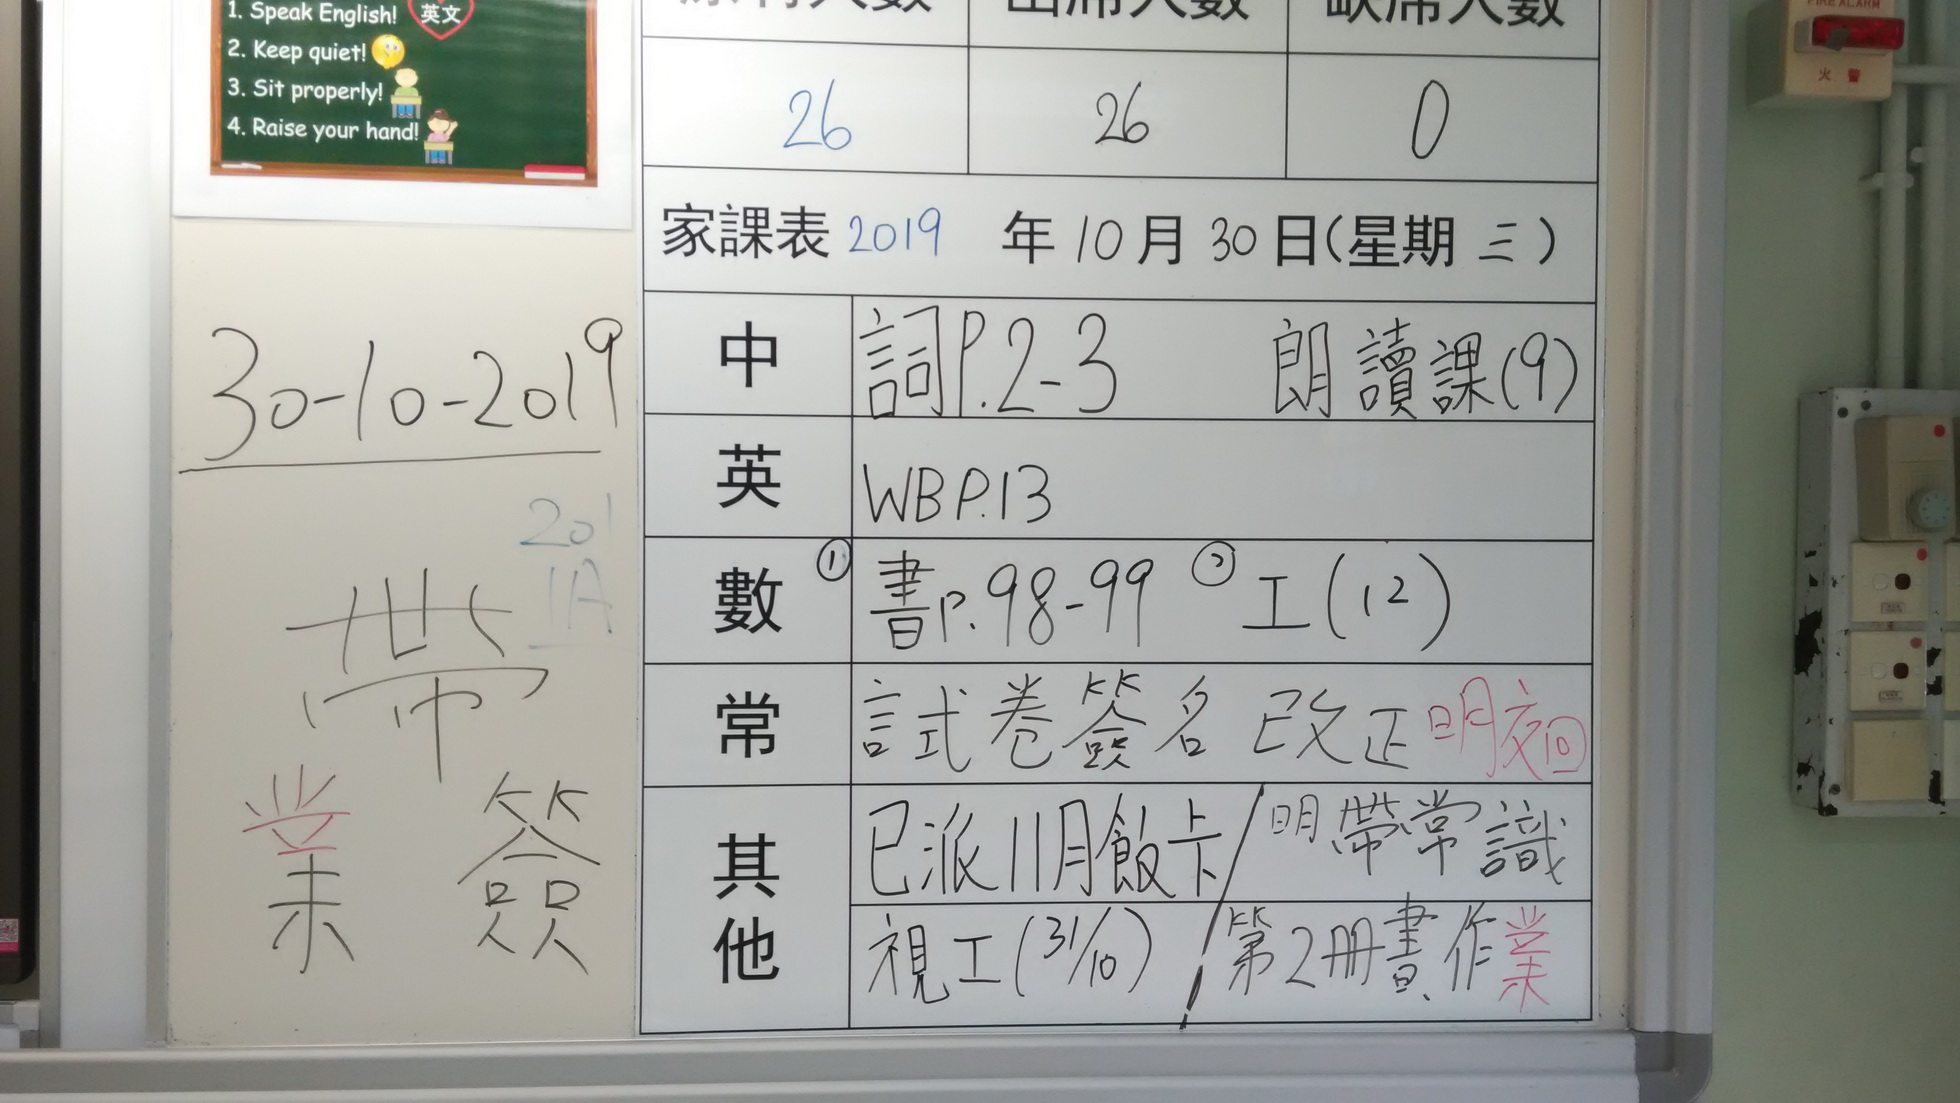 1. Speak English! 英文
2. Keep quiet!
3. Sit properly!
4. Raise your hand!
出席人數 缺席人數
26 26 0
家課表 2019 年 10 月 30 日(星期 三)
中 詞P.2-3 朗讀課(9)
英 WB P.13
數 ① 書P.98-99 ② 工(12)
常 試卷簽名 改正 明交回
其他 已派11月飯卡 / 明帶常識
視工(31/10) / 第2冊書、作業
30-10-2019
201
1A
帶
業 簽
FIRE ALARM
火警